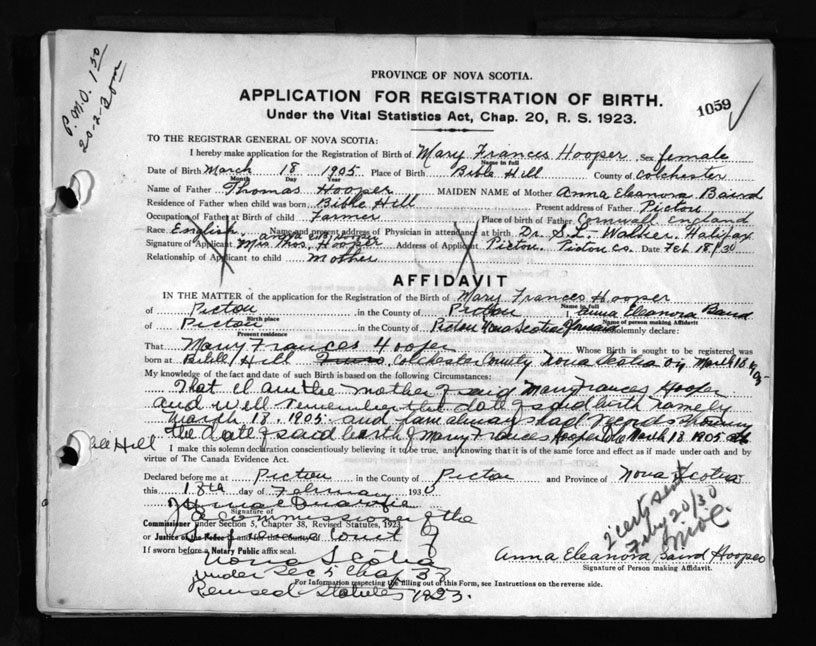 P.M.O. 1.50
20-2-30
PROVINCE OF NOVA SCOTIA.
APPLICATION FOR REGISTRATION OF BIRTH.
1059
Under the Vital Statistics Act, Chap. 20, R. S. 1923.
TO THE REGISTRAR GENERAL OF NOVA SCOTIA:
I hereby make application for the Registration of Birth of Mary Frances Hooper Sex female
Name in full
Date of Birth March 18 1905 Place of Birth Bible Hill County of Colchester
Month Day Year
Name of Father Thomas Hooper MAIDEN NAME of Mother Anna Eleanora Baird
Residence of Father when child was born Bible Hill Present address of Father Pictou
Occupation of Father at Birth of child Farmer Place of birth of Father Cornwall England
Race English Name and present address of Physician in attendance at birth Dr. S.L. Walker. Halifax
Signature of Applicant Mrs Thos. Hooper Address of Applicant Pictou. Pictou Co. Date Feb 18/30
Relationship of Applicant to child Mother
AFFIDAVIT
IN THE MATTER of the application for the Registration of the Birth of Mary Frances Hooper
Name in full
of Pictou in the County of Pictou I, Anna Eleanora Baird
Birth place
Name of person making Affidavit
of Pictou in the County of Pictou Nova Scotia solemnly declare:
Present residence
That Mary Frances Hooper Whose Birth is sought to be registered was
born at Bible Hill Truro Colchester County Nova Scotia on March 18
My knowledge of the fact and date of such Birth is based on the following Circumstances:
That I am the mother of said Mary Frances Hooper
and well remember the date of said birth namely
March 18. 1905 and have always had records showing
the date of said birth of Mary Frances Hooper March 18 1905
Bible Hill
I make this solemn declaration conscientiously believing it to be true, and knowing that it is of the same force and effect as if made under oath and by
virtue of The Canada Evidence Act.
Declared before me at Pictou in the County of Pictou and Province of Nova Scotia
this 18th day of February 1930
Signature of
A Commissioner of the
Commissioner under Section 5, Chapter 38, Revised Statutes, 1923.
or Justice of the Peace in and for the County of
Supreme Court of
If sworn before a Notary Public affix seal.
Nova Scotia
under Sec 5 Chap 37
For Information respecting the filling out of this Form, see Instructions on the reverse side.
Revised Statutes 1923.
2 certs sent
Feby 20/30
Anna Eleanora Baird Hooper
Signature of Person making Affidavit.